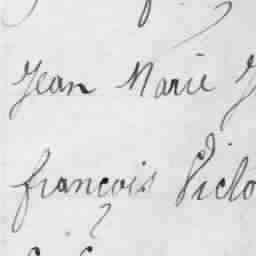 Jean Marie
françois Victo